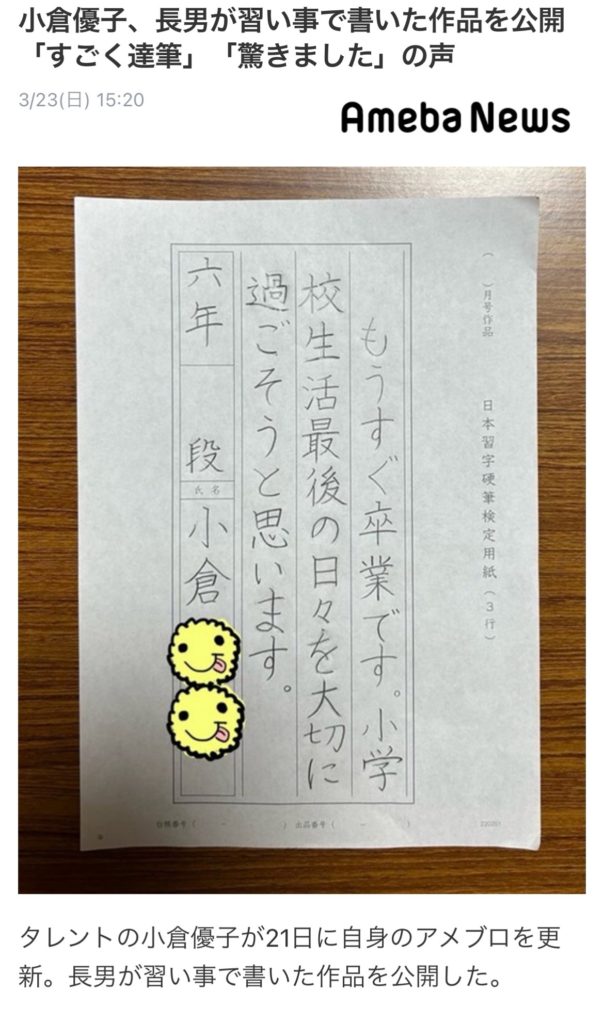 小倉優子、長男が習い事で書いた作品を公開
「すごく達筆」「驚きました」の声
3/23(日) 15:20
Ameba News
( )月号作品
日本習字硬筆検定用紙(3行)
もうすぐ卒業です。小学
校生活最後の日々を大切に
過ごそうと思います。
六年
段
氏名
小倉
出品番号( - )
タレントの小倉優子が21日に自身のアメブロを更
新。長男が習い事で書いた作品を公開した。